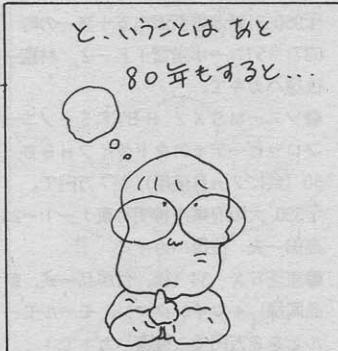 と、いうことは あと
80年もすると…